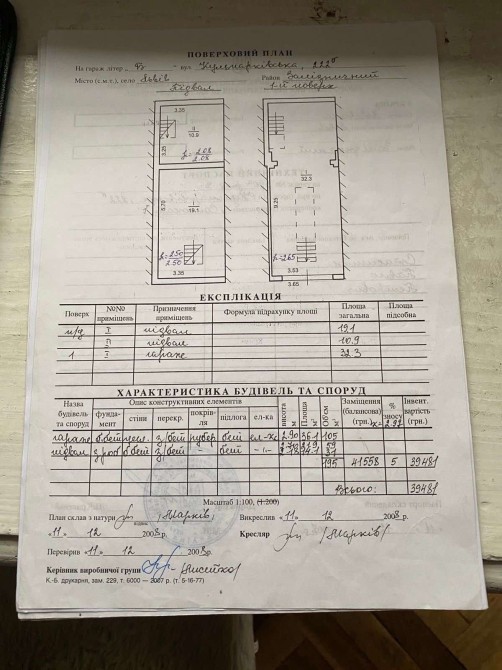 ПОВЕРХОВИЙ ПЛАН
На гараж літер „ Б - вул Кульпарківська, 222б
Місто (с.м.т.), село Львів Район Залізничний
Підвал 1-й поверх
3.35
II
10.9
3.25
h=2.08
2.08
5.70
I
19.1
h=2.50
2.50
3.35
L
I
32.3
9.25
h=2.65
3.53
3.65
ЕКСПЛІКАЦІЯ
Поверх №№ приміщень Призначення приміщень Формула підрахунку площі Площа загальна Площа підсобна
п/д I підвал 19.1
II підвал 10.9
1 I гараж 32.3
ХАРАКТЕРИСТИКА БУДІВЕЛЬ ТА СПОРУД
Назва будівель та споруд Опис конструктивних елементів висота м Площа м Об'єм м Заміщення (балансова) (грн.) % зносу Інвент. вартість (грн.)
фундамент стіни перекр. покрівля підлога ел-ка
к=2.92
гараж з/бет 2.90 36.1 105
підвал з/бет бет 59
31
195 41558 5 39481
Всього: 39481
Масштаб 1:100, (1:200)
План склав з натури /Шарків/ Викреслив «11» 12 2008 р.
«11» 12 2008 р. Кресляр /Шарків/
Перевірив «11» 12 2008 р.
Керівник виробничої групи
К.-Б. друкарня, зам. 229, т. 6000 — 2007 р. (т. 5-16-77)